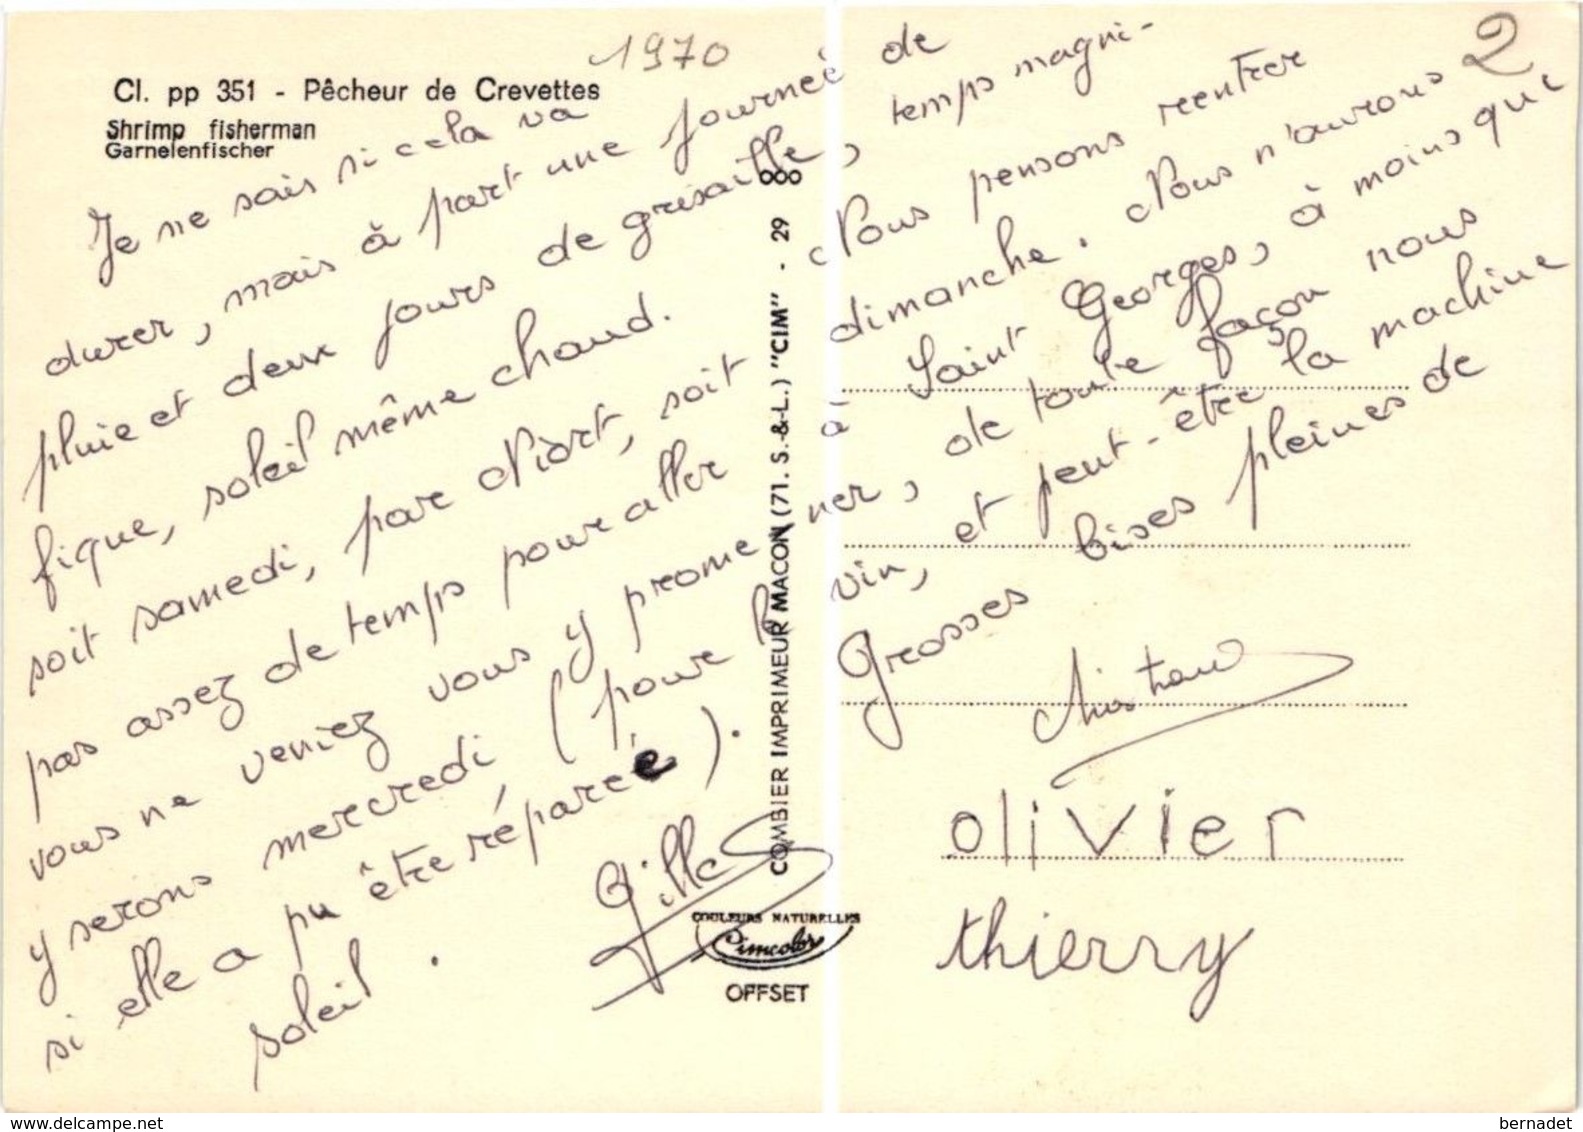 1970
2
Cl. pp 351 - Pêcheur de Crevettes
Shrimp fisherman
Garnelenfischer
Je ne sais si cela va
durer, mais à part une journée de
pluie et deux jours de grisaille, temps magni-
fique, soleil même chaud. Nous pensons rentrer
soit samedi, par Niort, soit dimanche. Nous n'aurons
pas assez de temps pour aller à Saint Georges, à moins que
vous ne veniez vous y promener, de toute façon nous
y serons mercredi (pour le vin, et peut-être la machine
si elle a pu être réparée). Grosses bises pleines de
soleil.
Gilles
olivier
thierry
COMBIER IMPRIMEUR MACON (71. S.-&-L.) "CIM" - 29
COULEURS NATURELLES
Cimcolor
OFFSET
www.delcampe.net
bernadet